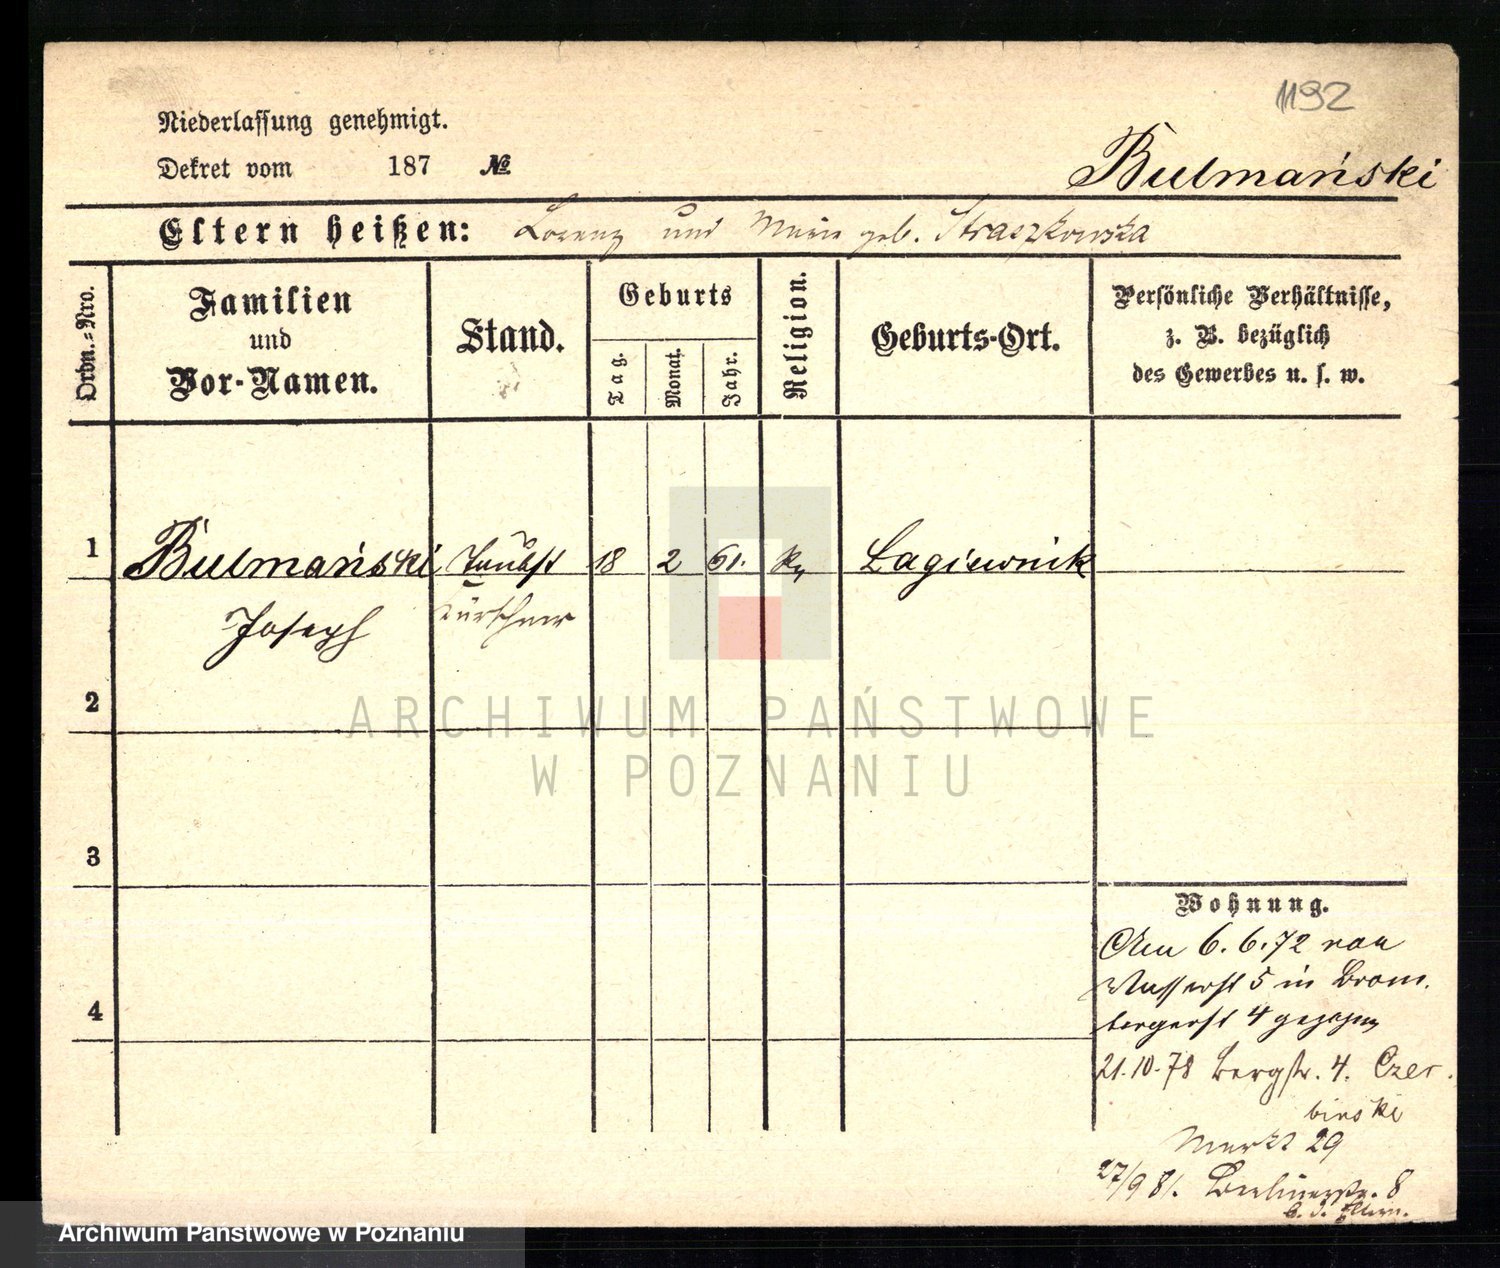 1192
Niederlassung genehmigt.
Dekret vom 187 №
Bulmański
Eltern heißen: Lorenz und Marie geb. Straszkowska
Ordn.-Nro.
Familien
und
Vor-Namen.
Stand.
Geburts
Tag.
Monat.
Jahr.
Religion.
Geburts-Ort.
Persönliche Verhältnisse,
z. B. bezüglich
des Gewerbes u. s. w.
1 Bulmański 18 2 61. Lagiewnik
Joseph Kürschner
2
3
4
ARCHIWUM PAŃSTWOWE
W POZNANIU
Wohnung.
Am 6.6.72 von
Wasserst 5 in Brom.
bergerst 4 gezogen
21.10.78 Bergstr. 4. Czer
binski
Markt 29
27/9 81. Berlinerstr. 8
b. d. Eltern.
Archiwum Państwowe w Poznaniu